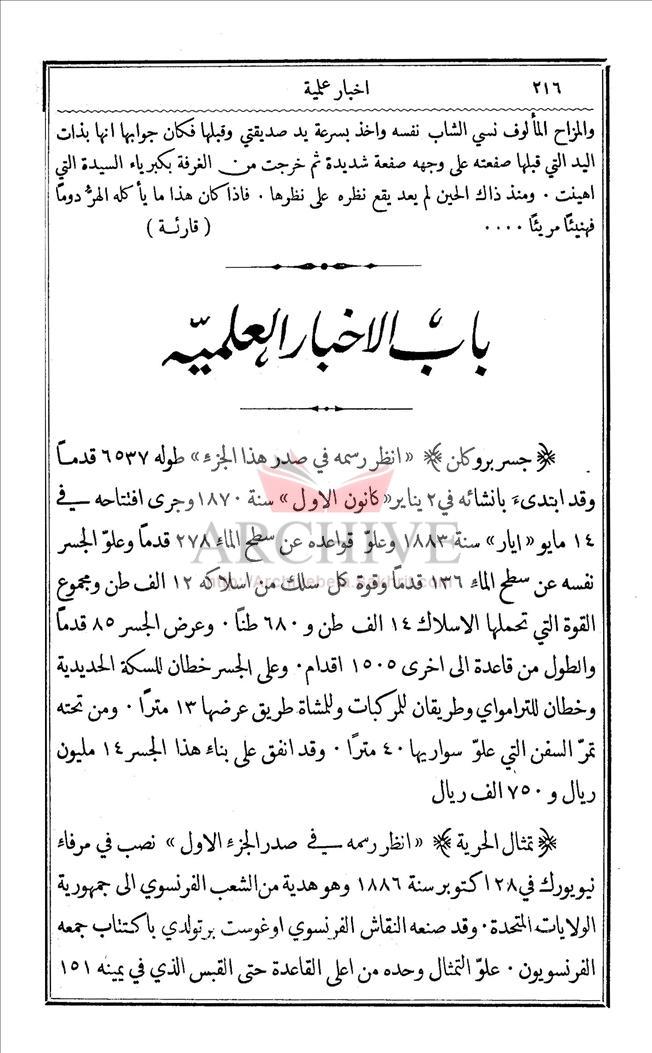 ٢١٦
اخبار علمية
والمزاح المألوف نسي الشاب نفسه واخذ بسرعة يد صديقتي وقبلها فكان جوابها انها بذات
اليد التي قبلها صفعته على وجهه صفعة شديدة ثم خرجت من الغرفة بكبرياء السيدة التي
اهينت ٠ ومنذ ذاك الحين لم يعد يقع نظره على نظرها ٠ فاذا كان هذا ما يأكله الهرُّ دوماً
فهنيئاً مريئاً ٠٠٠٠ ( قارئة )
باب الاخبار العلمية
﴿ جسر بروكلن ﴾ «انظر رسمه في صدر هذا الجزء» طوله ٦٥٣٧ قدماً
وقد ابتدىء بانشائه في ٢ يناير «كانون الاول» سنة ١٨٧٠ وجرى افتتاحه في
١٤ مايو «ايار» سنة ١٨٨٣ وعلوّ قواعده عن سطح الماء ٢٧٨ قدماً وعلوّ الجسر
نفسه عن سطح الماء ١٣٦ قدماً وقوة كل سلك من اسلاكه ١٢ الف طن ومجموع
القوة التي تحملها الاسلاك ١٤ الف طن و ٦٨٠ طناً ٠ وعرض الجسر ٨٥ قدماً
والطول من قاعدة الى اخرى ١٥٠٥ اقدام ٠ وعلى الجسر خطان للسكة الحديدية
وخطان للترامواي وطريقان للمركبات وللمشاة طريق عرضها ١٣ متراً ٠ ومن تحته
تمرّ السفن التي علوّ سواريها ٤٠ متراً ٠ وقد انفق على بناء هذا الجسر ١٤ مليون
ريال و ٧٥٠ الف ريال
﴿ تمثال الحرية ﴾ «انظر رسمه في صدر الجزء الاول» نصب في مرفاء
نيويورك في ٢٨ اكتوبر سنة ١٨٨٦ وهو هدية من الشعب الفرنسوي الى جمهورية
الولايات المتحدة ٠ وقد صنعه النقاش الفرنسوي اوغوست برتولدي باكتتاب جمعه
الفرنسويون ٠ علوّ التمثال وحده من اعلى القاعدة حتى القبس الذي في يمينه ١٥١
ARCHIVE